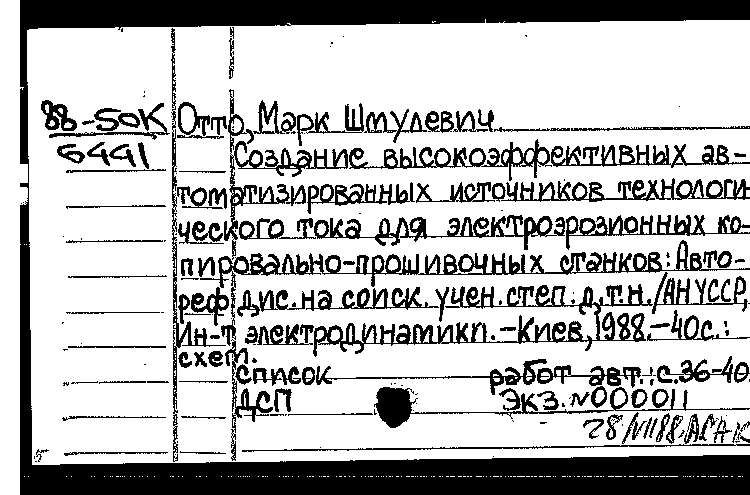 88-50К Отто, Марк Шмулевич.
6441 Создание высокоэффективных ав-
томатизированных источников технологи-
ческого тока для электроэрозионных ко-
пировально-прошивочных станков: Авто-
реф. дис. на соиск. учен. степ. д.т.н./АН УССР,
Ин-т электродинамики.-Киев, 1988.-40с.:
схем.
список работ авт.: с.36-40
ДСП Экз. №000011